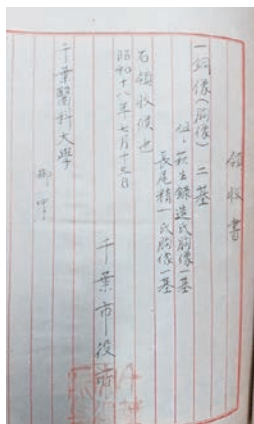 領收書
一銅像(胸像) 二基
但、萩生錄造氏胸像一基
長尾精一氏胸像一基
右領收候也
昭和十八年七月十三日
千葉市役所
千葉醫科大學
御中